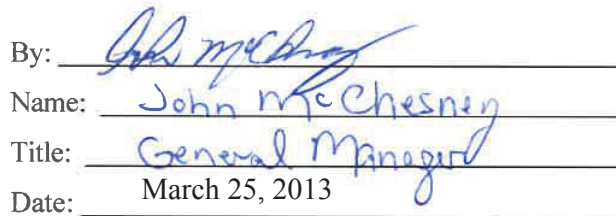 By: John McChesney
Name: John McChesney
Title: General Manager
Date: March 25, 2013